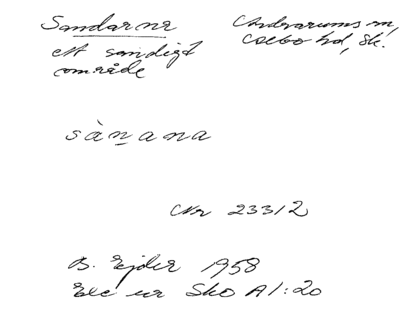 Sandarnr
ett sandigt
område
Andrarums sn,
Albo hd, Sk.
sàn̲ana
Nr 23312
B. Ejder 1958
Exc ur Sko A1:20